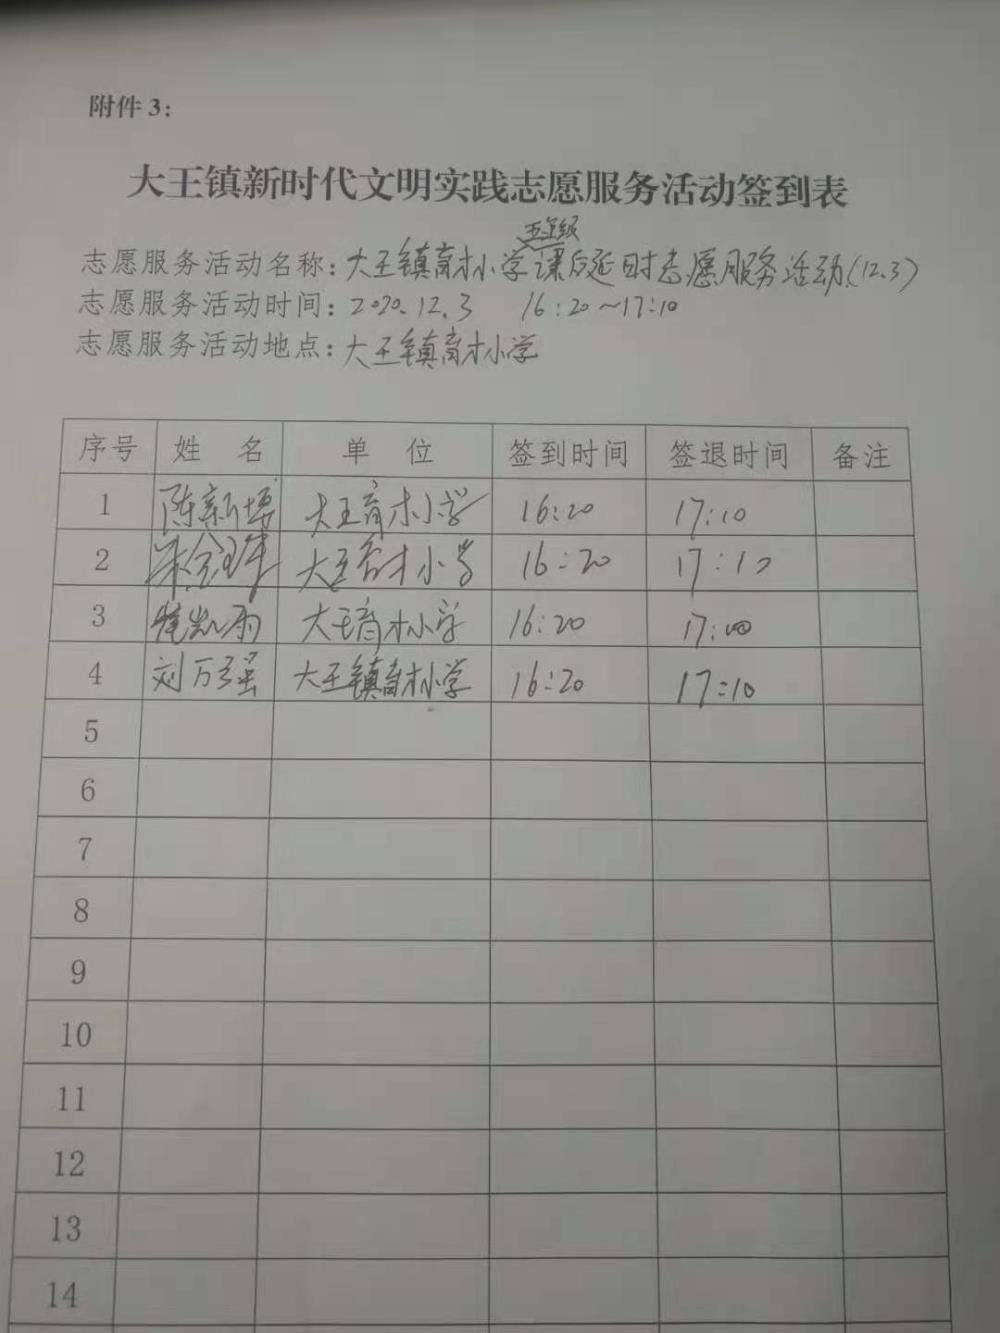 附件 3：
大王镇新时代文明实践志愿服务活动签到表
五年级
志愿服务活动名称：大王镇育才小学课后延时志愿服务活动(12.3)
志愿服务活动时间：2020.12.3 16:20～17:10
志愿服务活动地点：大王镇育才小学
序号 姓 名 单 位 签到时间 签退时间 备注
1 陈新博 大王育才小学 16:20 17:10
2 大王育才小学 16:20 17:10
3 崔凯雨 大王育才小学 16:20 17:00
4 刘万强 大王镇育才小学 16:20 17:10
5
6
7
8
9
10
11
12
13
14